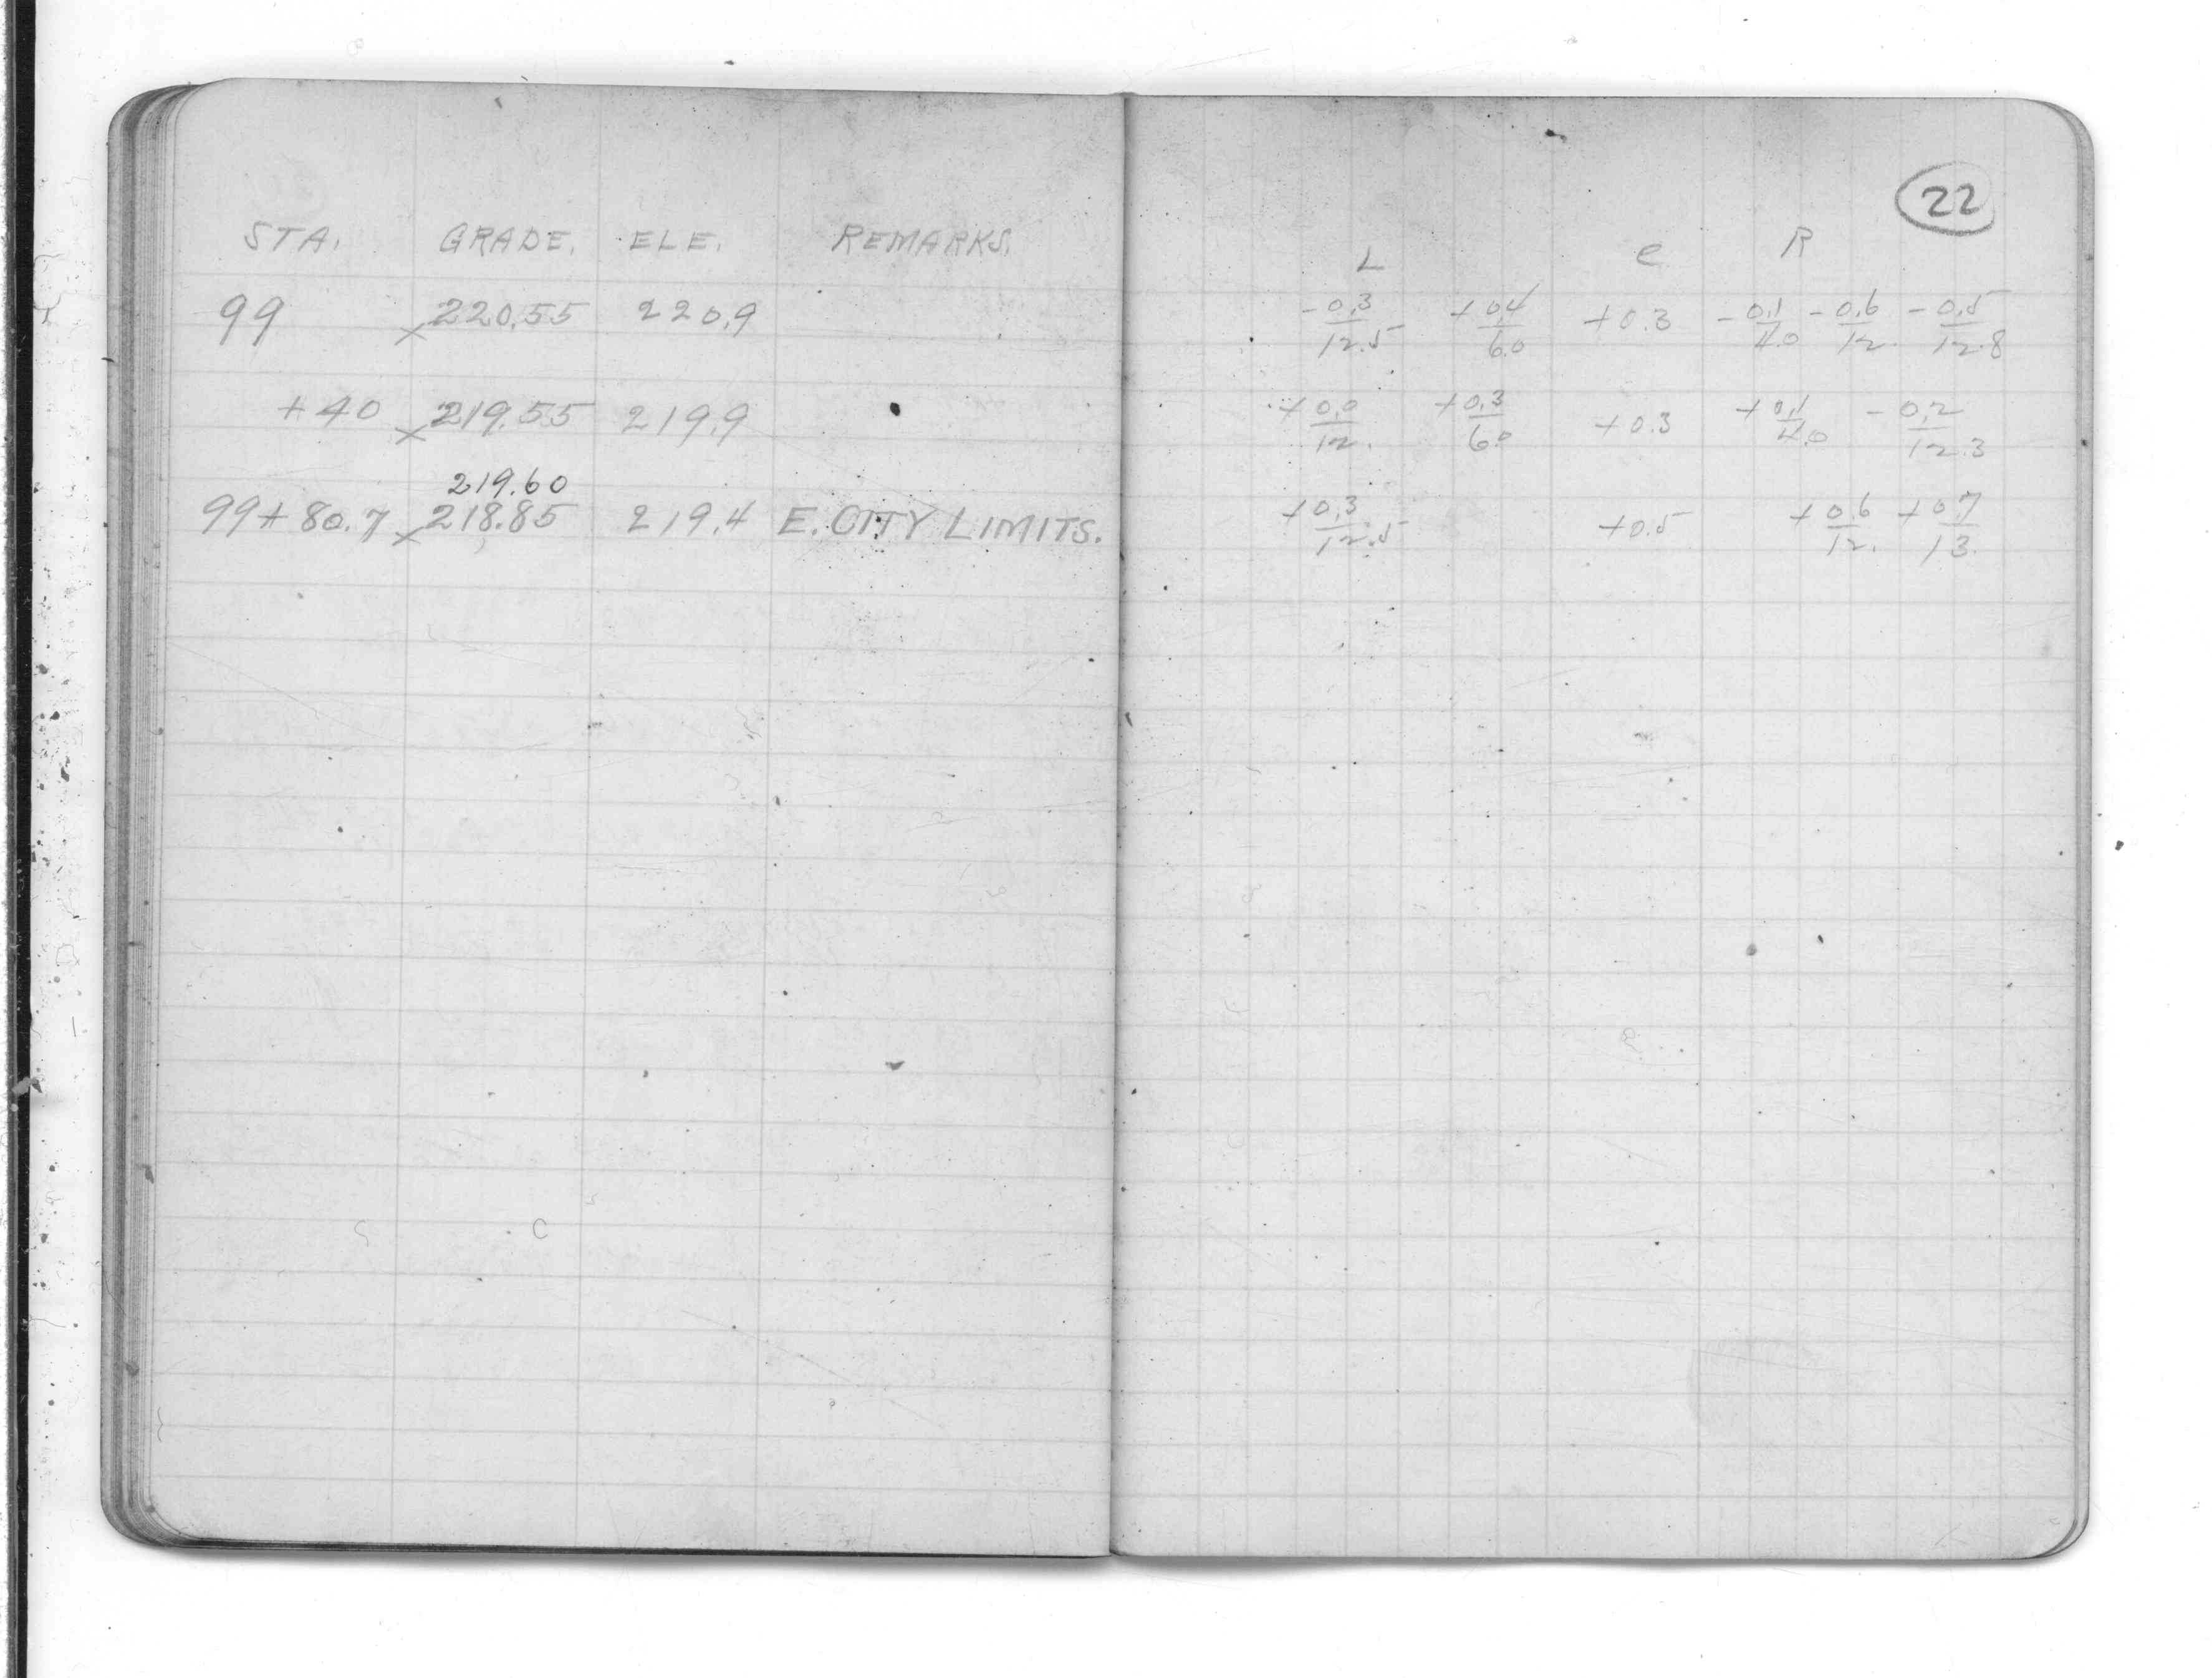 STA. GRADE. ELE. REMARKS.
99 x 220.55 220.9
+40 x 219.55 219.9
219.60
99+80.7 x 218.85 219.4 E. CITY LIMITS.
22
L C R
-0.3/12.5 +0.4/6.0 +0.3 -0.1/4.0 -0.6/12. -0.5/12.8
+0.0/12. +0.3/6.0 +0.3 +0.1/4.0 -0.2/12.3
+0.3/12.5 +0.5 +0.6/12. +0.7/13.